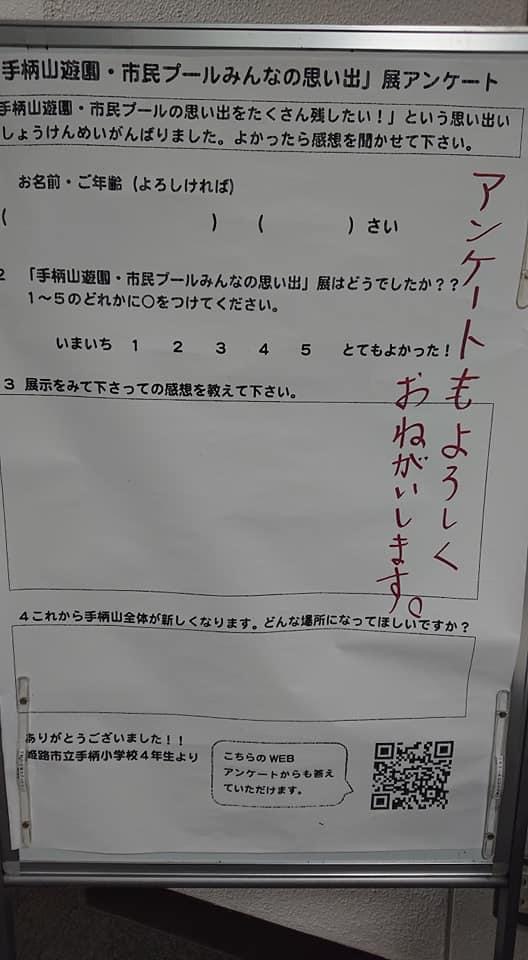 手柄山遊園・市民プールみんなの思い出」展アンケート
手柄山遊園・市民プールの思い出をたくさん残したい！」という思い出い
しょうけんめいがんばりました。よかったら感想を聞かせて下さい。
お名前・ご年齢（よろしければ）
（　　　　　　　　　　）　（　　　　）さい
2 「手柄山遊園・市民プールみんなの思い出」展はどうでしたか？？
1～5のどれかに○をつけてください。
いまいち 1 2 3 4 5 とてもよかった！
3 展示をみて下さっての感想を教えて下さい。
アンケートもよろしく
おねがいします。
4これから手柄山全体が新しくなります。どんな場所になってほしいですか？
ありがとうございました！！
姫路市立手柄小学校４年生より
こちらのWEB
アンケートからも答え
ていただけます。